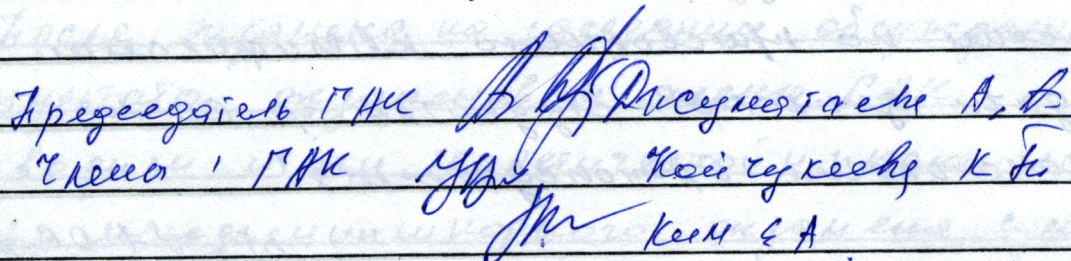 Председатель ГАК Джуматаева А, А
Члены: ГАК Койчукеева К
Ким Е А